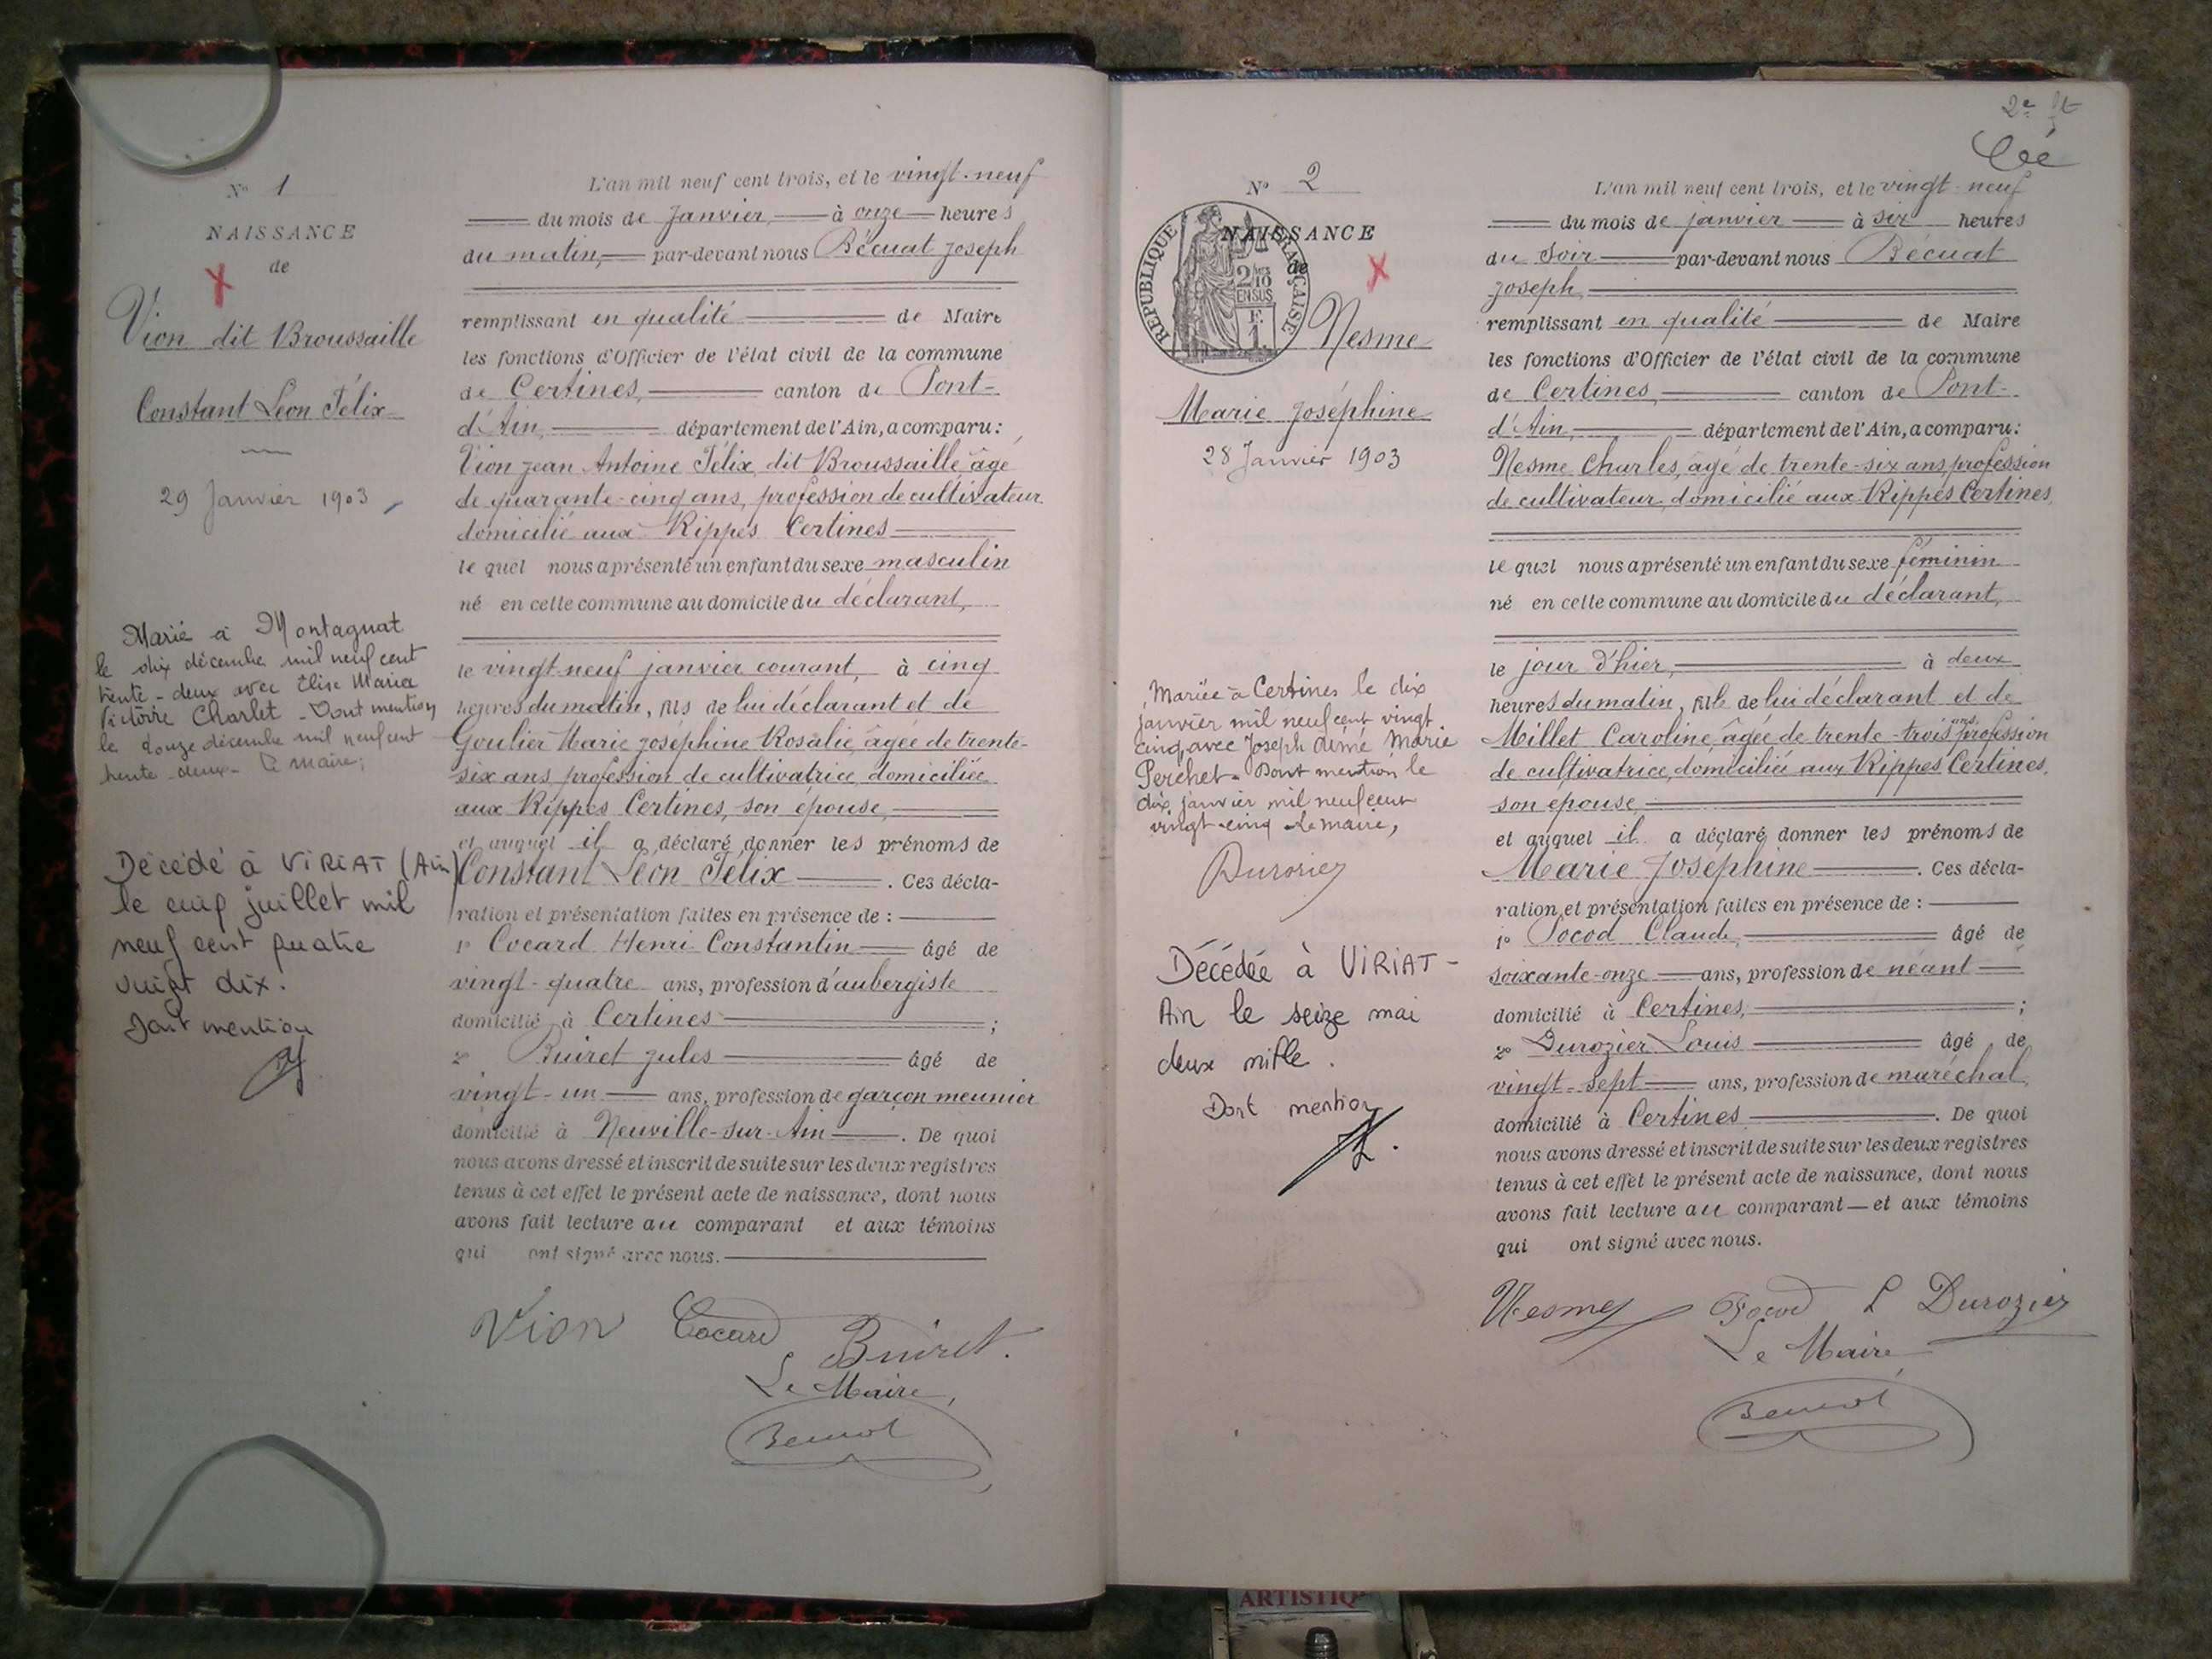 Nº 1
NAISSANCE
de
Vion dit Broussaille
Constant Léon Félix
29 Janvier 1903
Marié à Montagnat
le dix décembre mil neuf cent
trente-deux avec Elise Maria
Victoire Charlet - Dont mention
le douze décembre mil neuf cent
trente-deux - Le Maire;
Décédé à VIRIAT (Ain)
le cinq juillet mil
neuf cent quatre
vingt dix.
Dont mention
L'an mil neuf cent trois, et le vingt-neuf
du mois de Janvier, à onze heures
du matin, par-devant nous Bécuat Joseph
remplissant en qualité de Maire
les fonctions d'Officier de l'état civil de la commune
de Certines, canton de Pont-
d'Ain, département de l'Ain, a comparu:
Vion Jean Antoine Félix, dit Broussaille âgé
de quarante-cinq ans, profession de cultivateur
domicilié aux Rippes Certines
lequel nous a présenté un enfant du sexe masculin
né en cette commune au domicile du déclarant,
le vingt-neuf janvier courant, à cinq
heures du matin, fils de lui déclarant et de
Goulier Marie Joséphine Rosalie, âgée de trente-
six ans profession de cultivatrice, domiciliée
aux Rippes Certines, son épouse,
et auquel il a déclaré donner les prénoms de
Constant Léon Félix. Ces décla-
ration et présentation faites en présence de :
1º Cocard Henri Constantin âgé de
vingt-quatre ans, profession d'aubergiste
domicilié à Certines ;
2º Buiret Jules âgé de
vingt-un ans, profession de garçon meunier
domicilié à Neuville-sur-Ain. De quoi
nous avons dressé et inscrit de suite sur les deux registres
tenus à cet effet le présent acte de naissance, dont nous
avons fait lecture au comparant et aux témoins
qui ont signé avec nous.
Vion Cocard Buiret.
Le Maire,
2e
Nº 2
RÉPUBLIQUE FRANÇAISE
2/10 EN SUS
F. 1.
NAISSANCE
de
Nesme
Marie Joséphine
28 Janvier 1903
Mariée à Certines le dix
janvier mil neuf cent vingt
cinq avec Joseph Aimé Marie
Perchet - Dont mention le
dix janvier mil neuf cent
vingt-cinq - Le maire,
Durozier
Décédée à VIRIAT -
Ain le seize mai
deux mille.
Dont mention
L'an mil neuf cent trois, et le vingt-neuf
du mois de janvier à six heures
du soir par-devant nous Bécuat
Joseph,
remplissant en qualité de Maire
les fonctions d'Officier de l'état civil de la commune
de Certines, canton de Pont-
d'Ain, département de l'Ain, a comparu:
Nesme Charles, âgé de trente-six ans, profession
de cultivateur, domicilié aux Rippes Certines,
lequel nous a présenté un enfant du sexe féminin
né en cette commune au domicile du déclarant,
le jour d'hier, à deux
heures du matin, fille de lui déclarant et de
Millet Caroline âgée de trente-trois ans, profession
de cultivatrice, domiciliée aux Rippes Certines,
son épouse,
et auquel il a déclaré donner les prénoms de
Marie Joséphine. Ces décla-
ration et présentation faites en présence de :
1º Pocod Claude, âgé de
soixante-onze ans, profession de néant
domicilié à Certines, ;
2º Durozier Louis âgé de
vingt-sept ans, profession de maréchal,
domicilié à Certines. De quoi
nous avons dressé et inscrit de suite sur les deux registres
tenus à cet effet le présent acte de naissance, dont nous
avons fait lecture au comparant et aux témoins
qui ont signé avec nous.
Nesme Pocod L Durozier
Le Maire,
ARTISTIQ